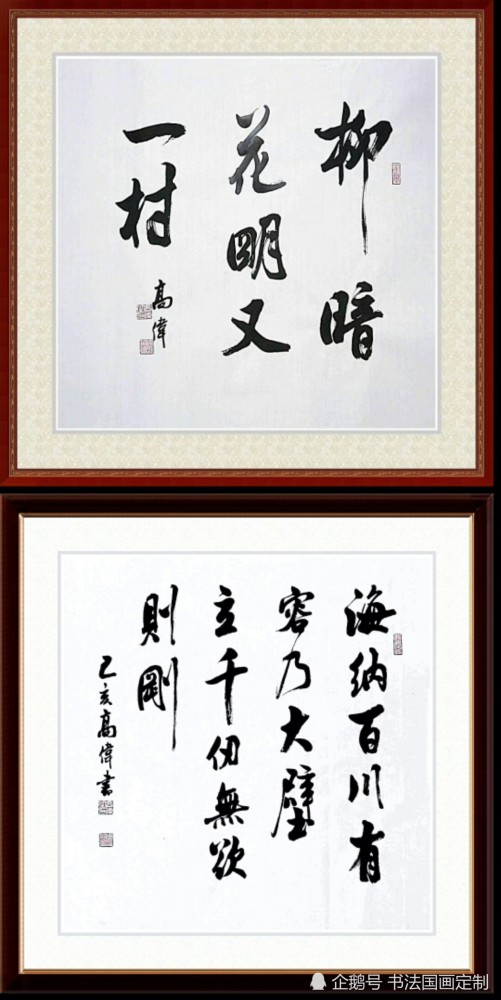 柳暗
花明又
一村
高偉
海纳百川有
容乃大壁
立千仞無欲
則剛
己亥高偉書
企鹅号 书法国画定制